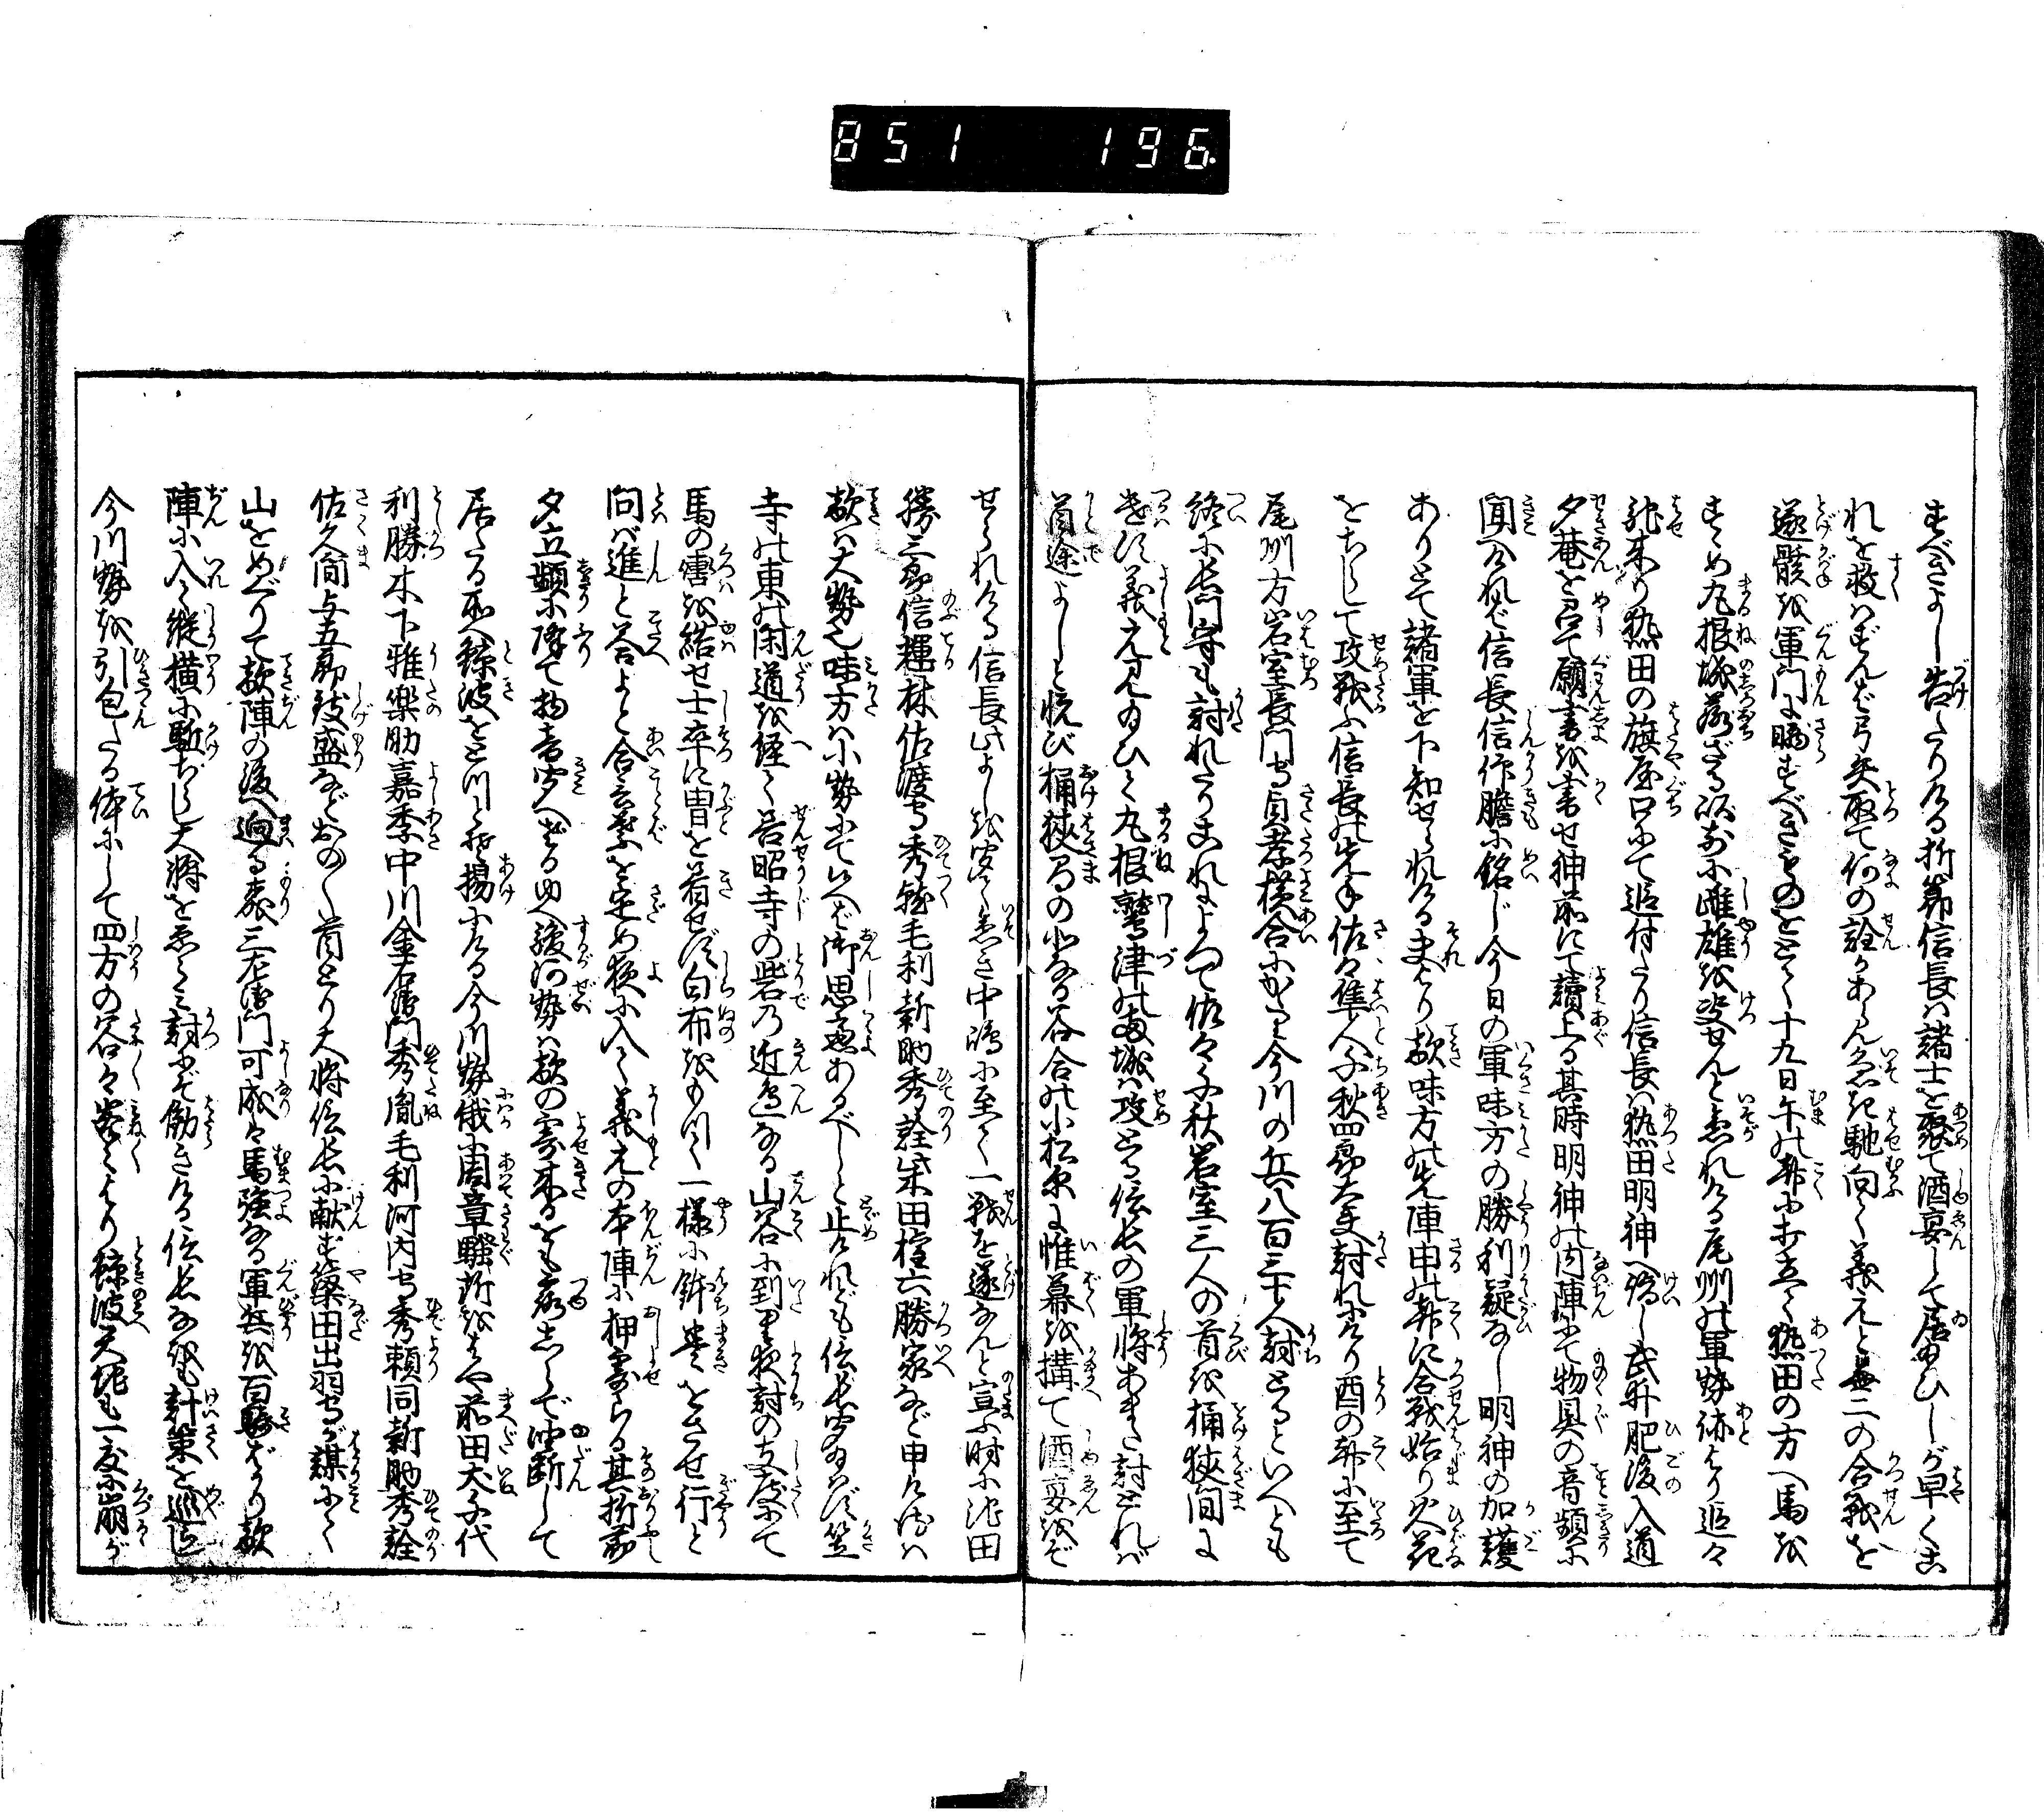 851 196
すべきよし告たりける折節信長は諸士を聚て酒宴して居給ひしが早くこ
れを救はずんば弓矢取て何の詮かあらん急ぎ馳向て義元と無二の合戦を
遂骸を軍門に曝すべきものをとて十九日午の刻に打立て熱田の方へ馬を
すゝめ丸根城落ざる以前に雌雄を決せんと急れける尾州の軍勢跡より追々
馳来り熱田の旗屋口にて追付たり信長は熱田明神へ詣し武井肥後入道
夕菴を召て願書を書せ神前にて読上る其時明神の内陣にて物具の音頻に
聞へければ信長信仰肝に銘じ今日の軍味方の勝利疑なし明神の加護
ありとて諸軍を下知せられける夫より敵味方の先陣申の刻に合戦始り火花
をちらして攻戦ふ信長の先手佐々隼人千秋四郎大夫討れにけり酉の刻に至て
尾州方岩室長門守貞孝横合にかゝり今川の兵八百三十人討とるといへども
終に長門守も討れたりこれによつて佐々千秋岩室三人の首を桶狭間に
遣す義元見給ひて丸根鷲津の両城は攻とる信長の軍将あまた討とれば
首途よしと悦び桶狭間の北なる谷合の小松原に帷幕を構て酒宴をぞ
せられける信長此よしを聞て急ぎ中嶋に至て一戦を遂なんと宣ふ時に池田
勝三郎信輝林佐渡守秀貞毛利新助秀詮柴田権六勝家など申けるは
敵は大勢也味方は小勢にて候へば御思慮あるべしと止けれども信長聞給はず笠
寺の東の閑道を経て善昭寺の砦の近辺なる山谷に到り夜討の支度にて
馬の轡を結せ士卒に冑を着せず白布をもつて一様に鉢巻をさせ行と
問ば進と答よと合言葉を定め夜に入て義元の本陣に押寄らる其折節
夕立頻に降て物音聞へざる故駿河勢は敵の寄来るをも露しらで油断して
居たる所へ鯨波をどつとぞ揚にける今川勢俄に周章騒所をはや前田犬千代
利勝木下雅楽助嘉季中川金右衛門秀胤毛利河内守秀頼同新助秀詮
佐久間与五郎茂盛などおの〳〵首とり大将信長に献ず簗田出羽守が謀にて
山をめぐりて敵陣の後へ廻る森三左衛門可成々馬強なる軍兵を百騎ばかり敵
陣に入て縦横に駈ちらし大将を尋て討にぞ働きける信長なをも計策を巡らし
今川勢を引包たる体にして四方の谷々峯々より鯨波天地も一度に崩が